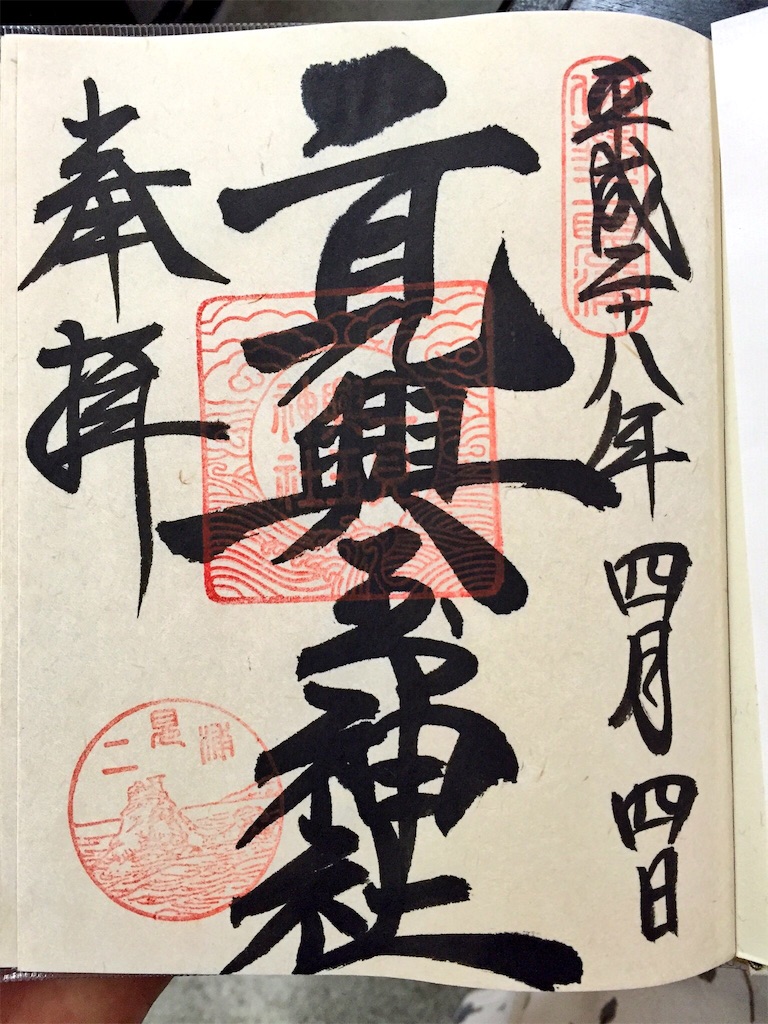 平成二十八年 四月 四日
二見興玉神社
奉拝
神社
二見浦